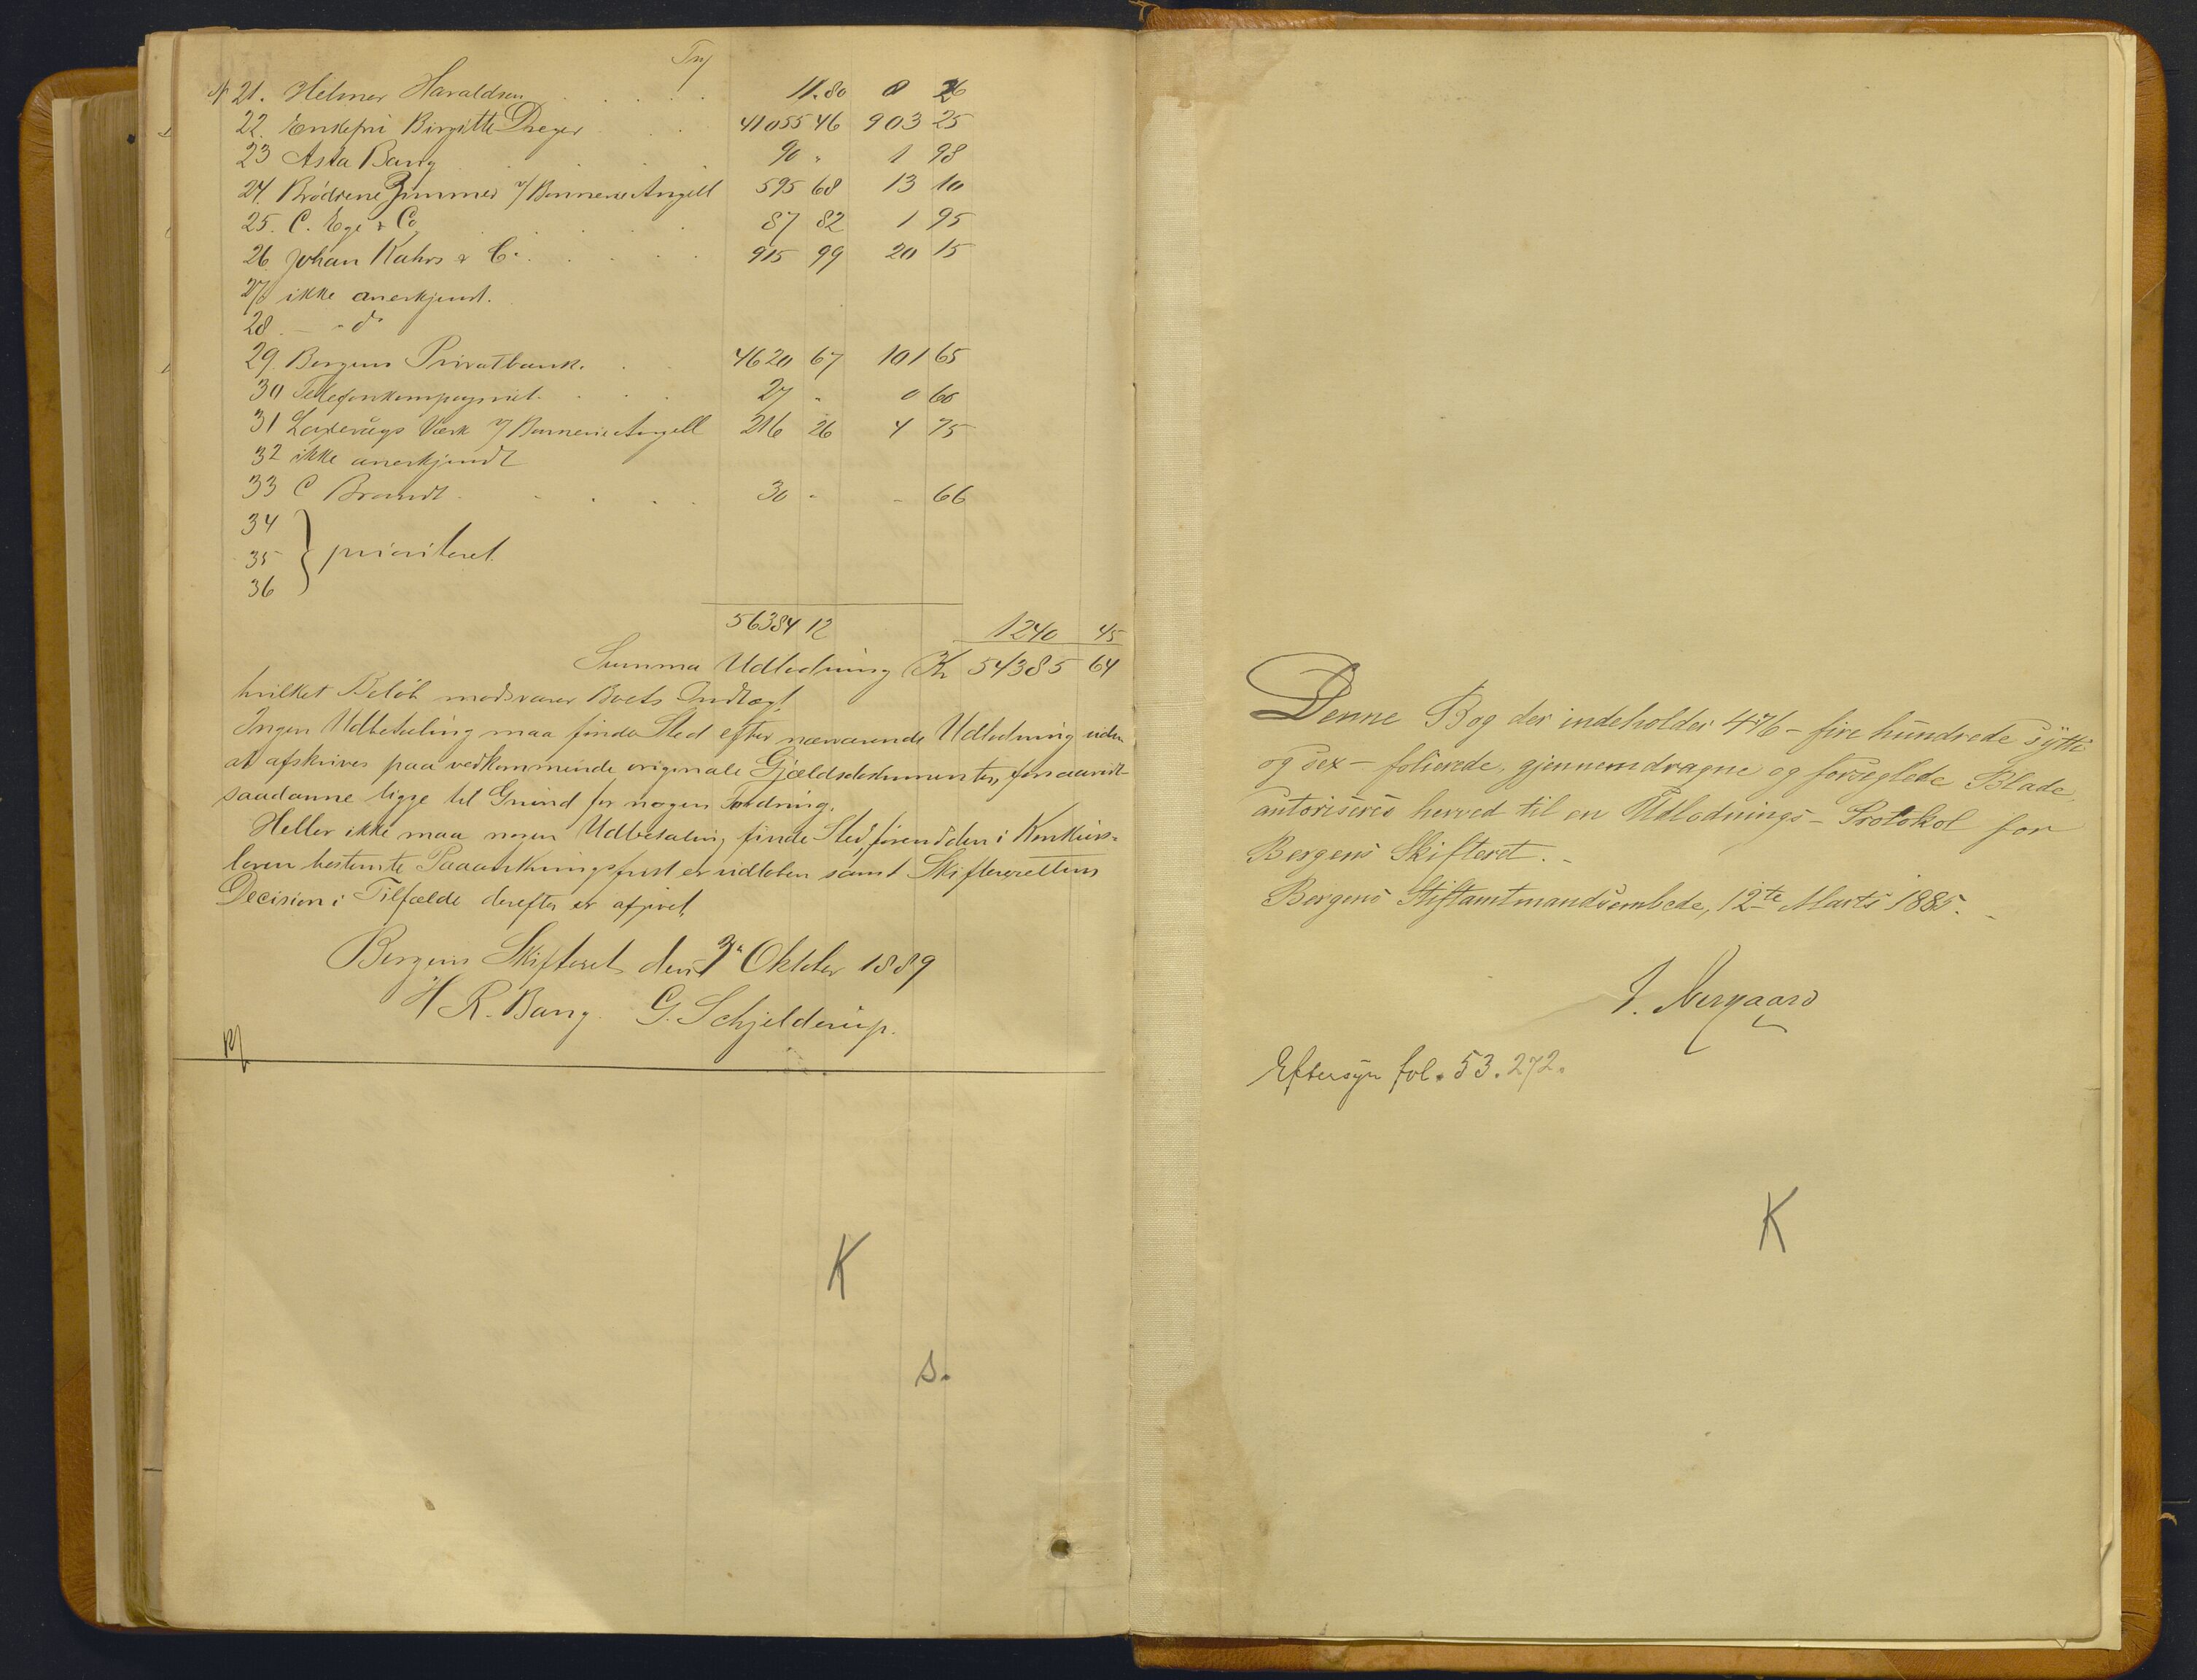 Trf
N 21. Helmer Haraldsen 11.80 0 26
22. Enkefru Birgitte Dreyer 41055 46 903 25
23 Asta Bang 90 " 1 98
24. Brödrene Zimmer v/ Bonnevie Angell 595 68 13 10
25. C. Ege & Co 87 82 1 95
26 Johan Kahrs & Co. 915 99 20 15
27 ikke anerkjendt.
28 — " do
29. Bergens Privatbank. 4620 67 101 65
30 Telefonkompagniet. 27 " 0 60
31 Laxevågs Værk v/ Bonnevie Angell 216 26 4 75
32 ikke anerkjendt
33 C Brandt 30 " - 66
34
35 } prioriteret.
36
56384 12 1240 45
Summa Udlodning Kr 54385 64
hvilket Beløb modsvarer Boets Indtægt.
Ingen Udbetaling maa finde Sted efter nærværende Udlodning uden
at afskrives paa vedkommende originale Gjældsdokumenter, forsaavidt
saadanne ligge til Grund for nogen Fordring.
Heller ikke maa nogen Udbetaling finde Sted, förend den i Konkurs-
loven bestemte Paaankningsfrist er udløben samt Skifterettens
Decision i Tilfælde derefter er afgivet
Bergens Skifteret den 3 Oktober 1889
H R. Bang. G. Schjelderup.
K
s.
Denne Bog der indeholder 476 - fire hundrede sytti
og sex - folierede, gjennemdragne og forseglede Blade,
autoriseres herved til en Udlodnings-Protokol for
Bergens Skifteret. -
Bergens Stiftamtmandsembede, 12te Marts 1885. -
Eftersyn fol. 53. 272.
K